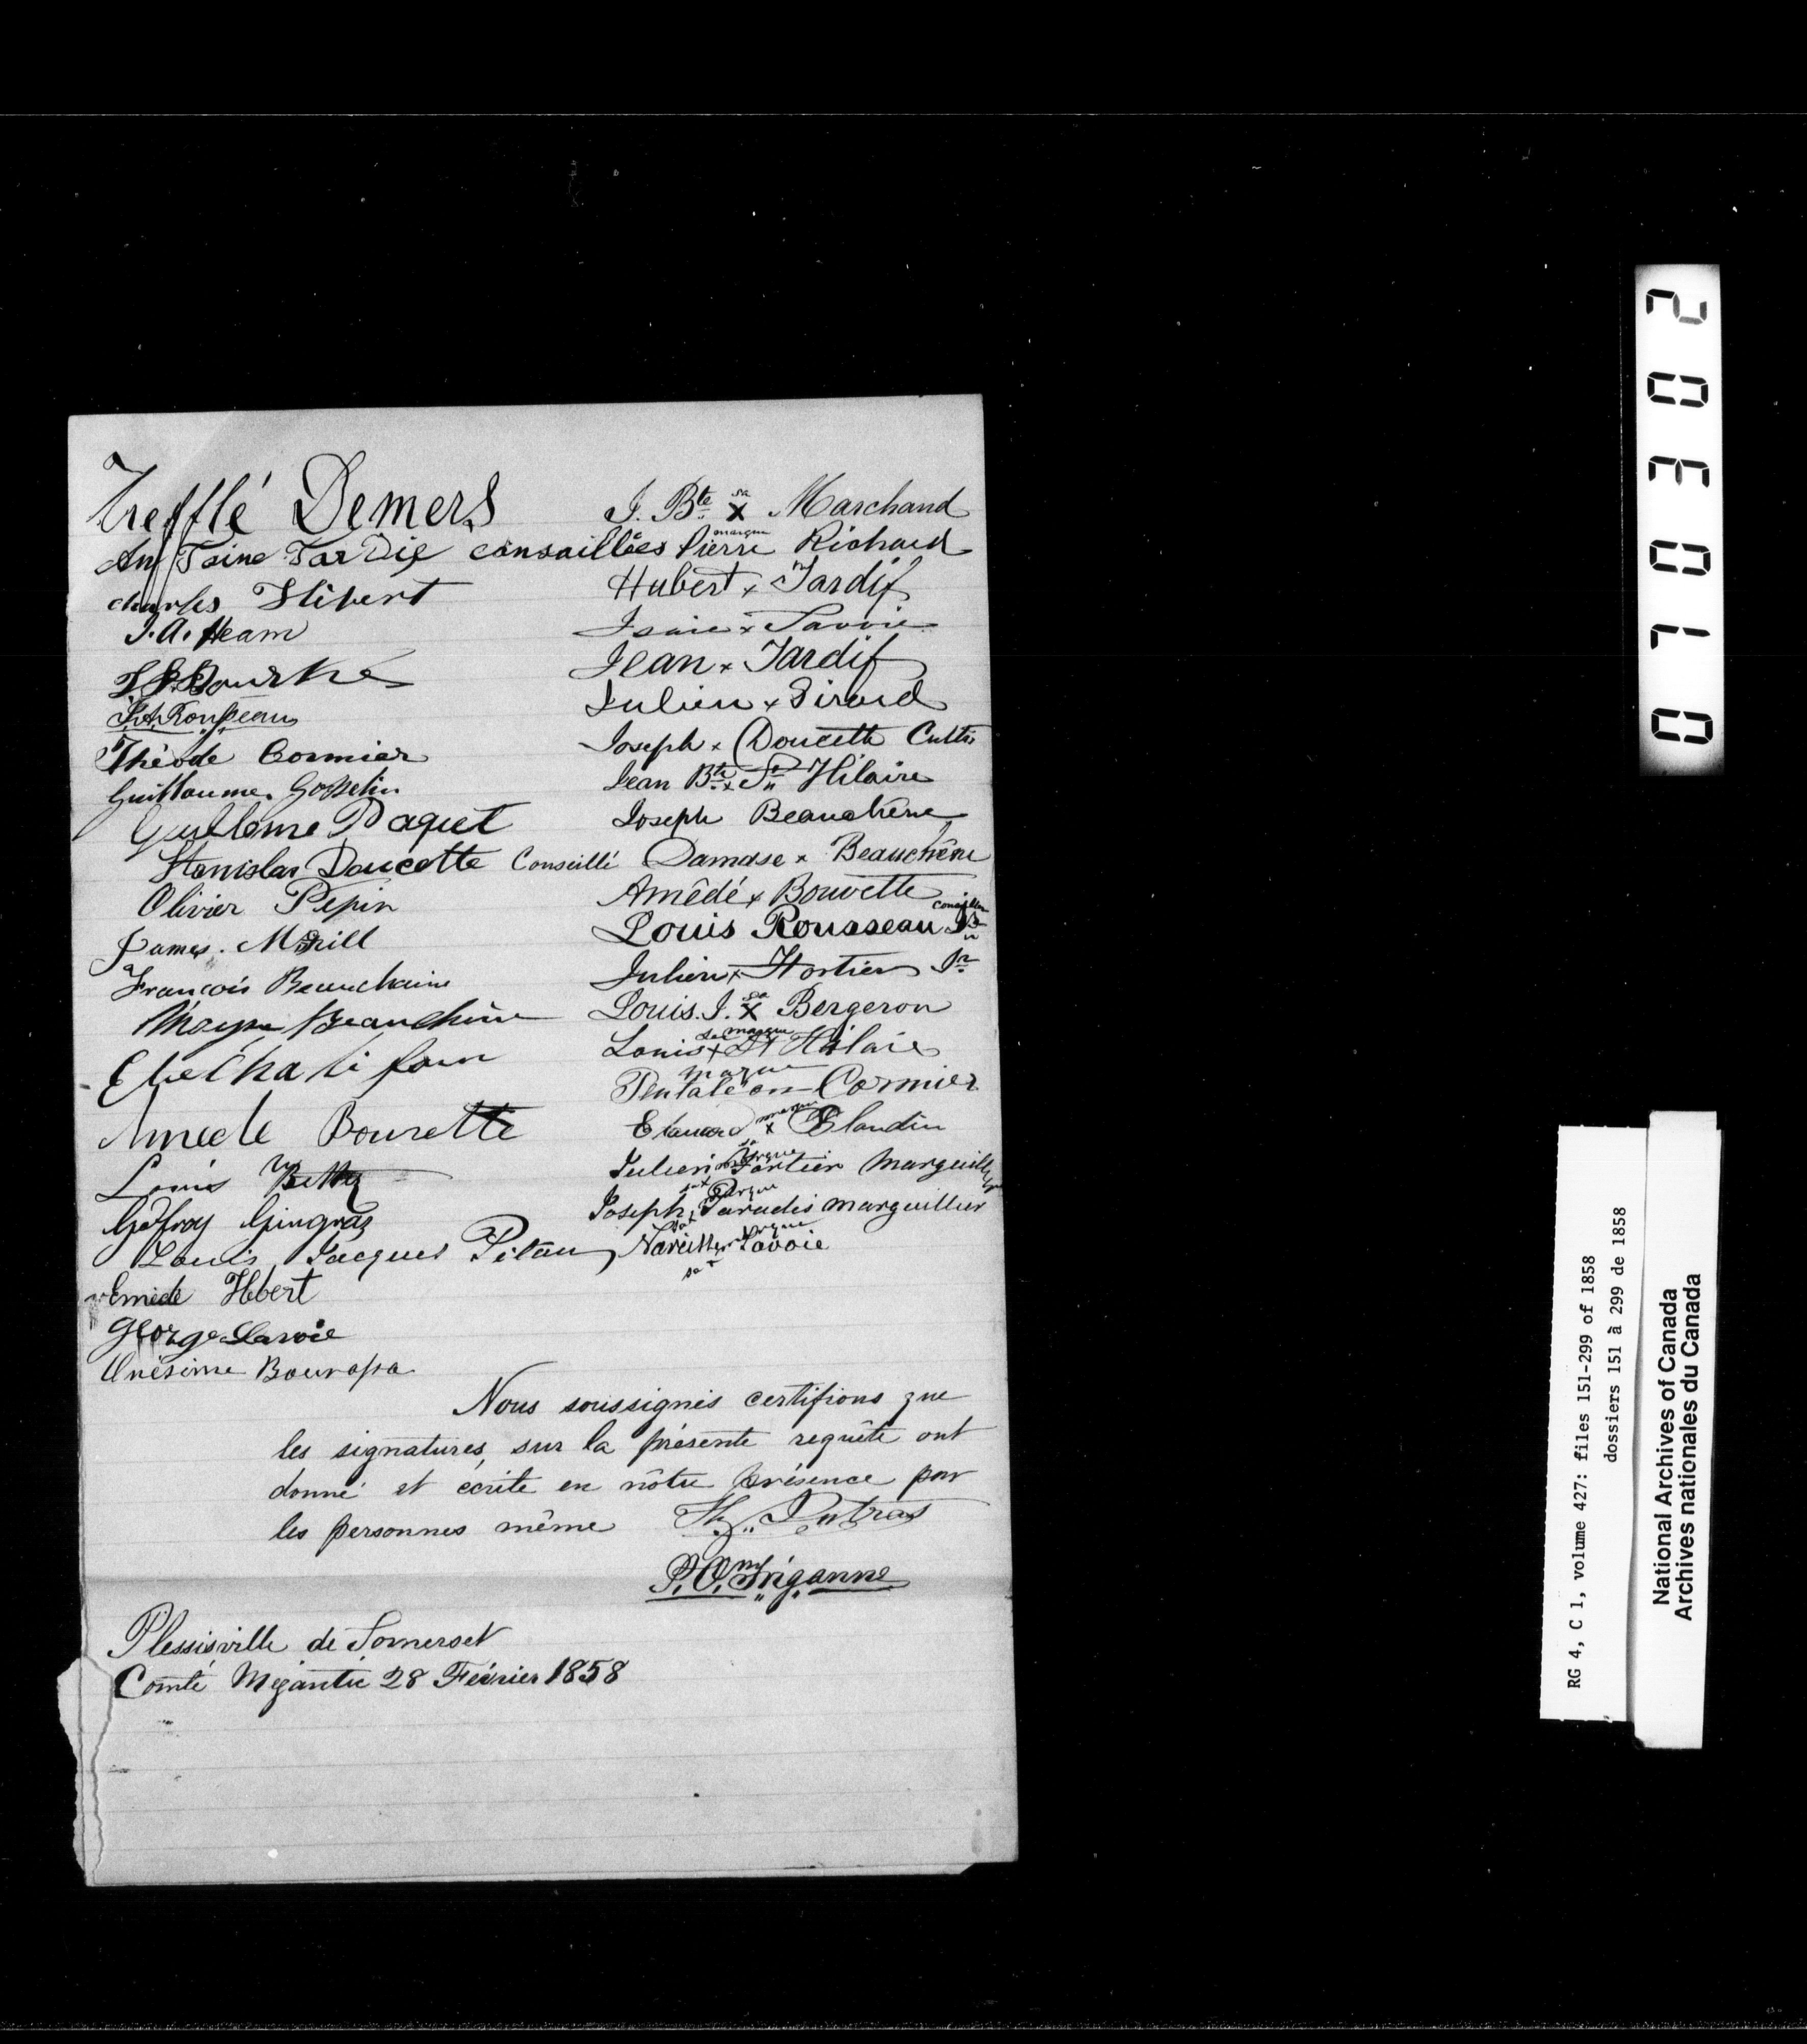 Trefflé Demers
An Toine Tardif consaillées
charles Hibert
J. A. Heam
Bourke
Théode Cormier
Guillaume Gosselin
Guilleme Paquet
Stanislas Doucette Conseillé
Olivier Pepin
James
François Beauchaine
Beauchène
Amede Bourette
Louis
Godfroy Gingras
Louis Jacques
Emede Hebert
George Savoie
Onésime
J. Bte sa X Marchand
marque
Pierre Richard
Hubert x Tardif
Isaie x Savoie
Jean x Tardif
Julien x Girard
Joseph x Doucette Cultr
Jean Bte x St Hilaire
Joseph Beauchêne
Damase x Beauchêne
Amêdé x Bouvette
Louis Rousseau
Julien x Fortier Sr
Louis. J. sa X Bergeron
marque
Louis x St Hilaire
marque
Pentaleon Cormier
marque
x Blandin
Julien Fortier Marguillier
Joseph Paradis marguillier
Narcisse Savoie
Nous soussignés certifions que
les signatures, sur la présente requête ont
donné et écrite en nôtre présence par
les personnes même
Dutras
P. O.
Plessisville de Somerset
Comté Mégantic 28 Février 1858
071030 2
RG 4, C 1, volume 427: files 151-299 of 1858
dossiers 151 à 299 de 1858
National Archives of Canada
Archives nationales du Canada